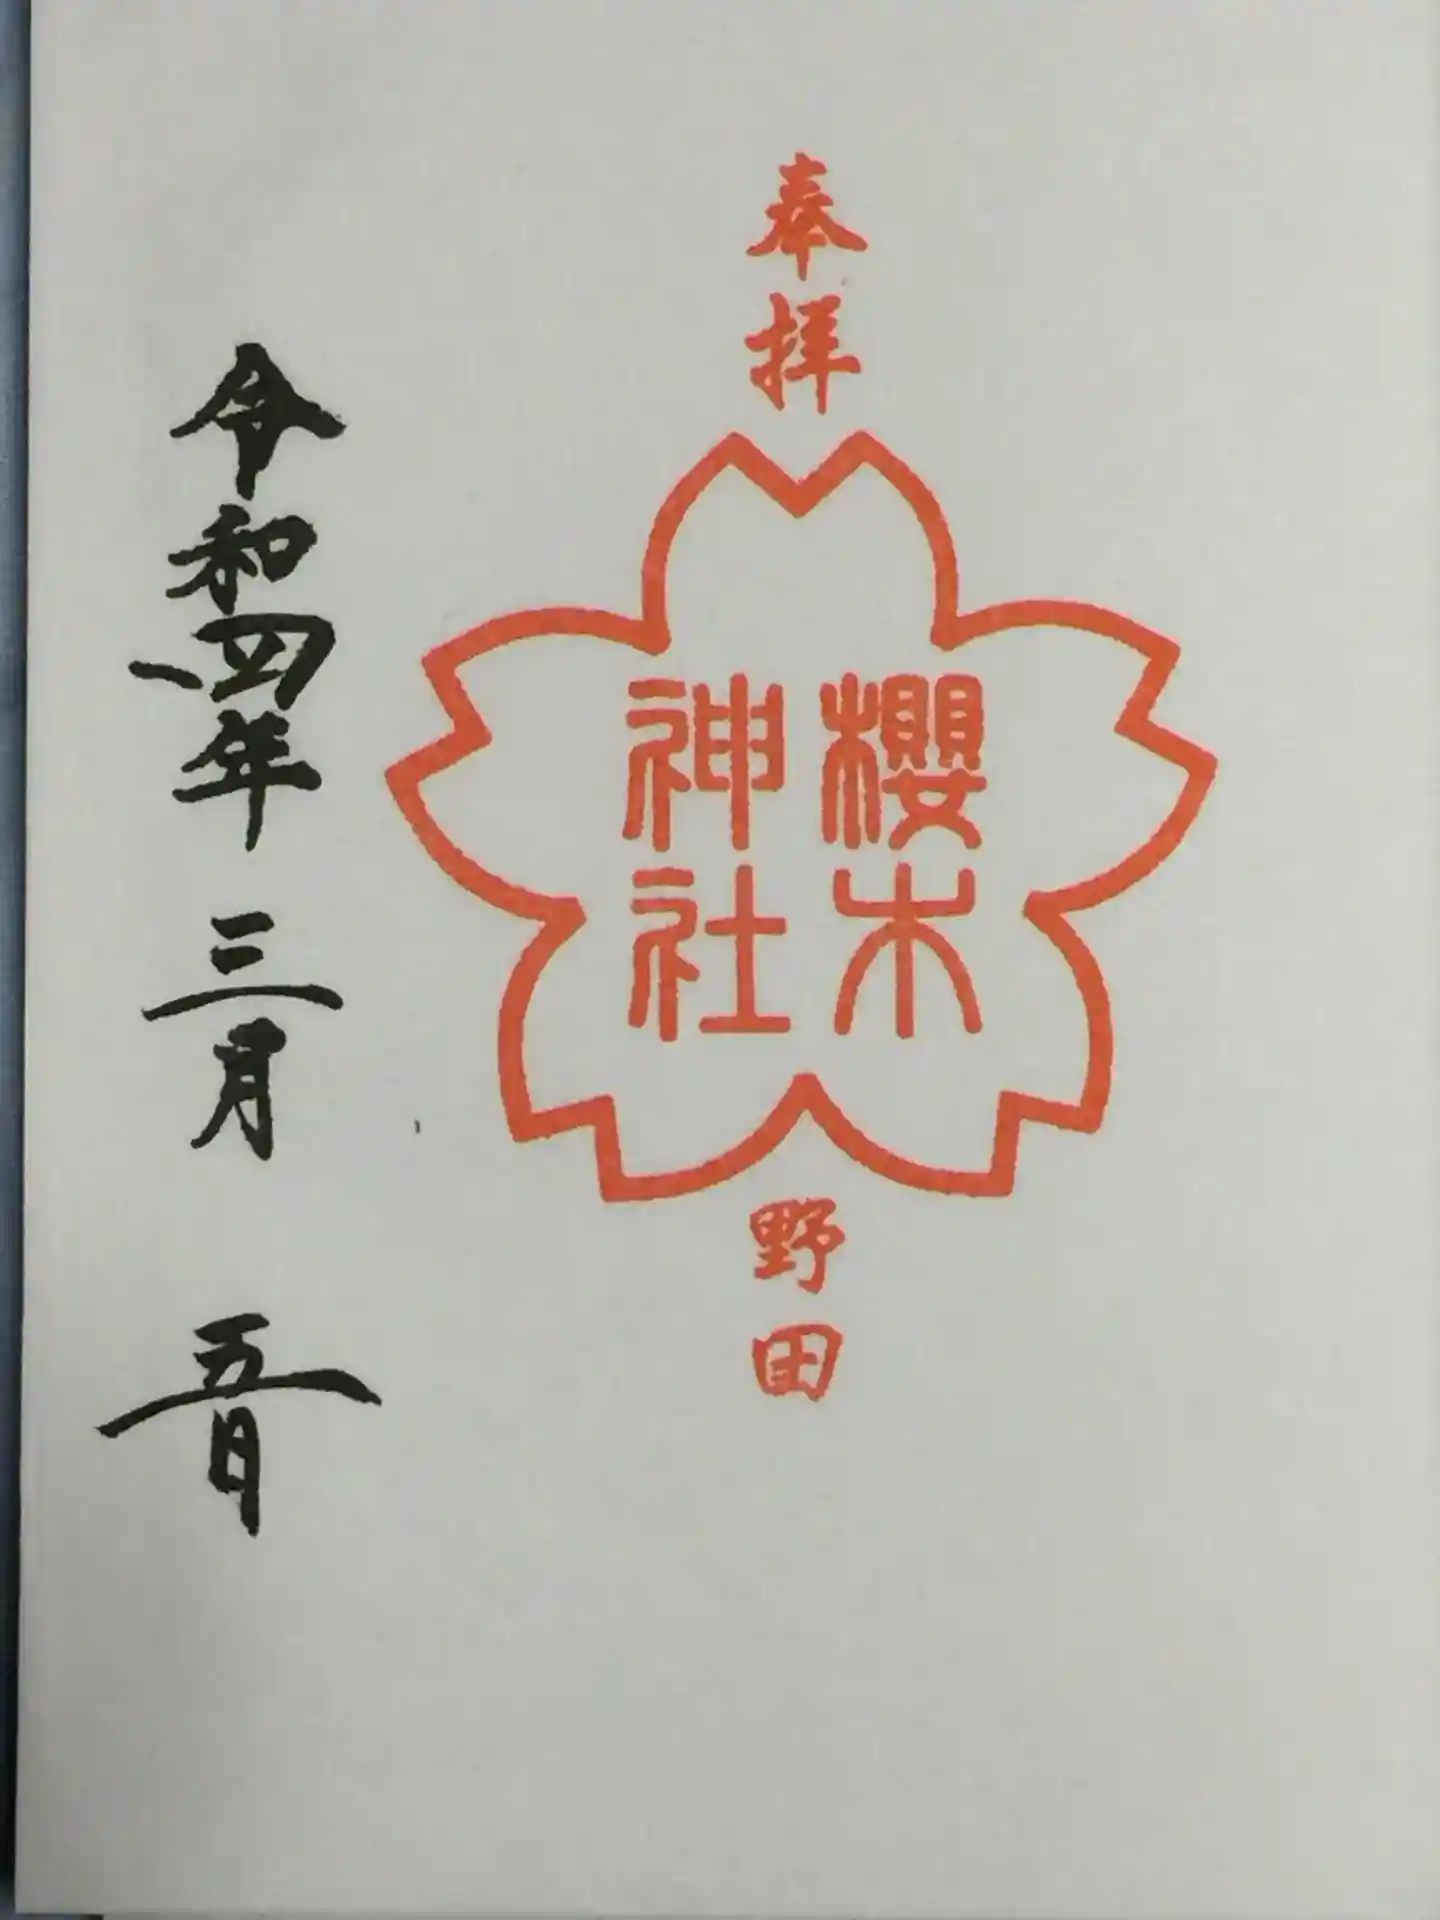 奉拝
櫻木
神社
野田
令和四年三月五日